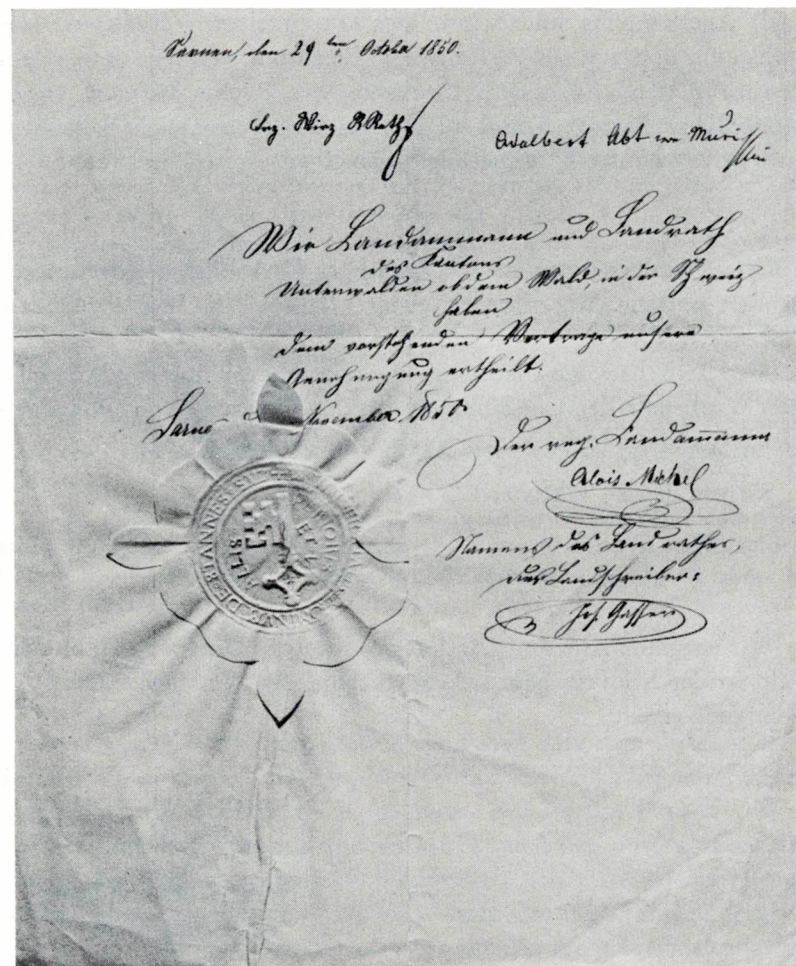 Sarnen, den 29ten October 1850.
Frz. Wirz RRath
Adalbert Abt von Muri
Wir Landammann und Landrath
des Kantons
Unterwalden ob dem Wald, in der Schweiz
haben
dem vorstehenden Vertrage unsere
Genehmigung ertheilt.
November 1850
Der reg. Landammann
Alois Michel
Namens des Landrathes,
der Landschreiber:
Jos. Gasser